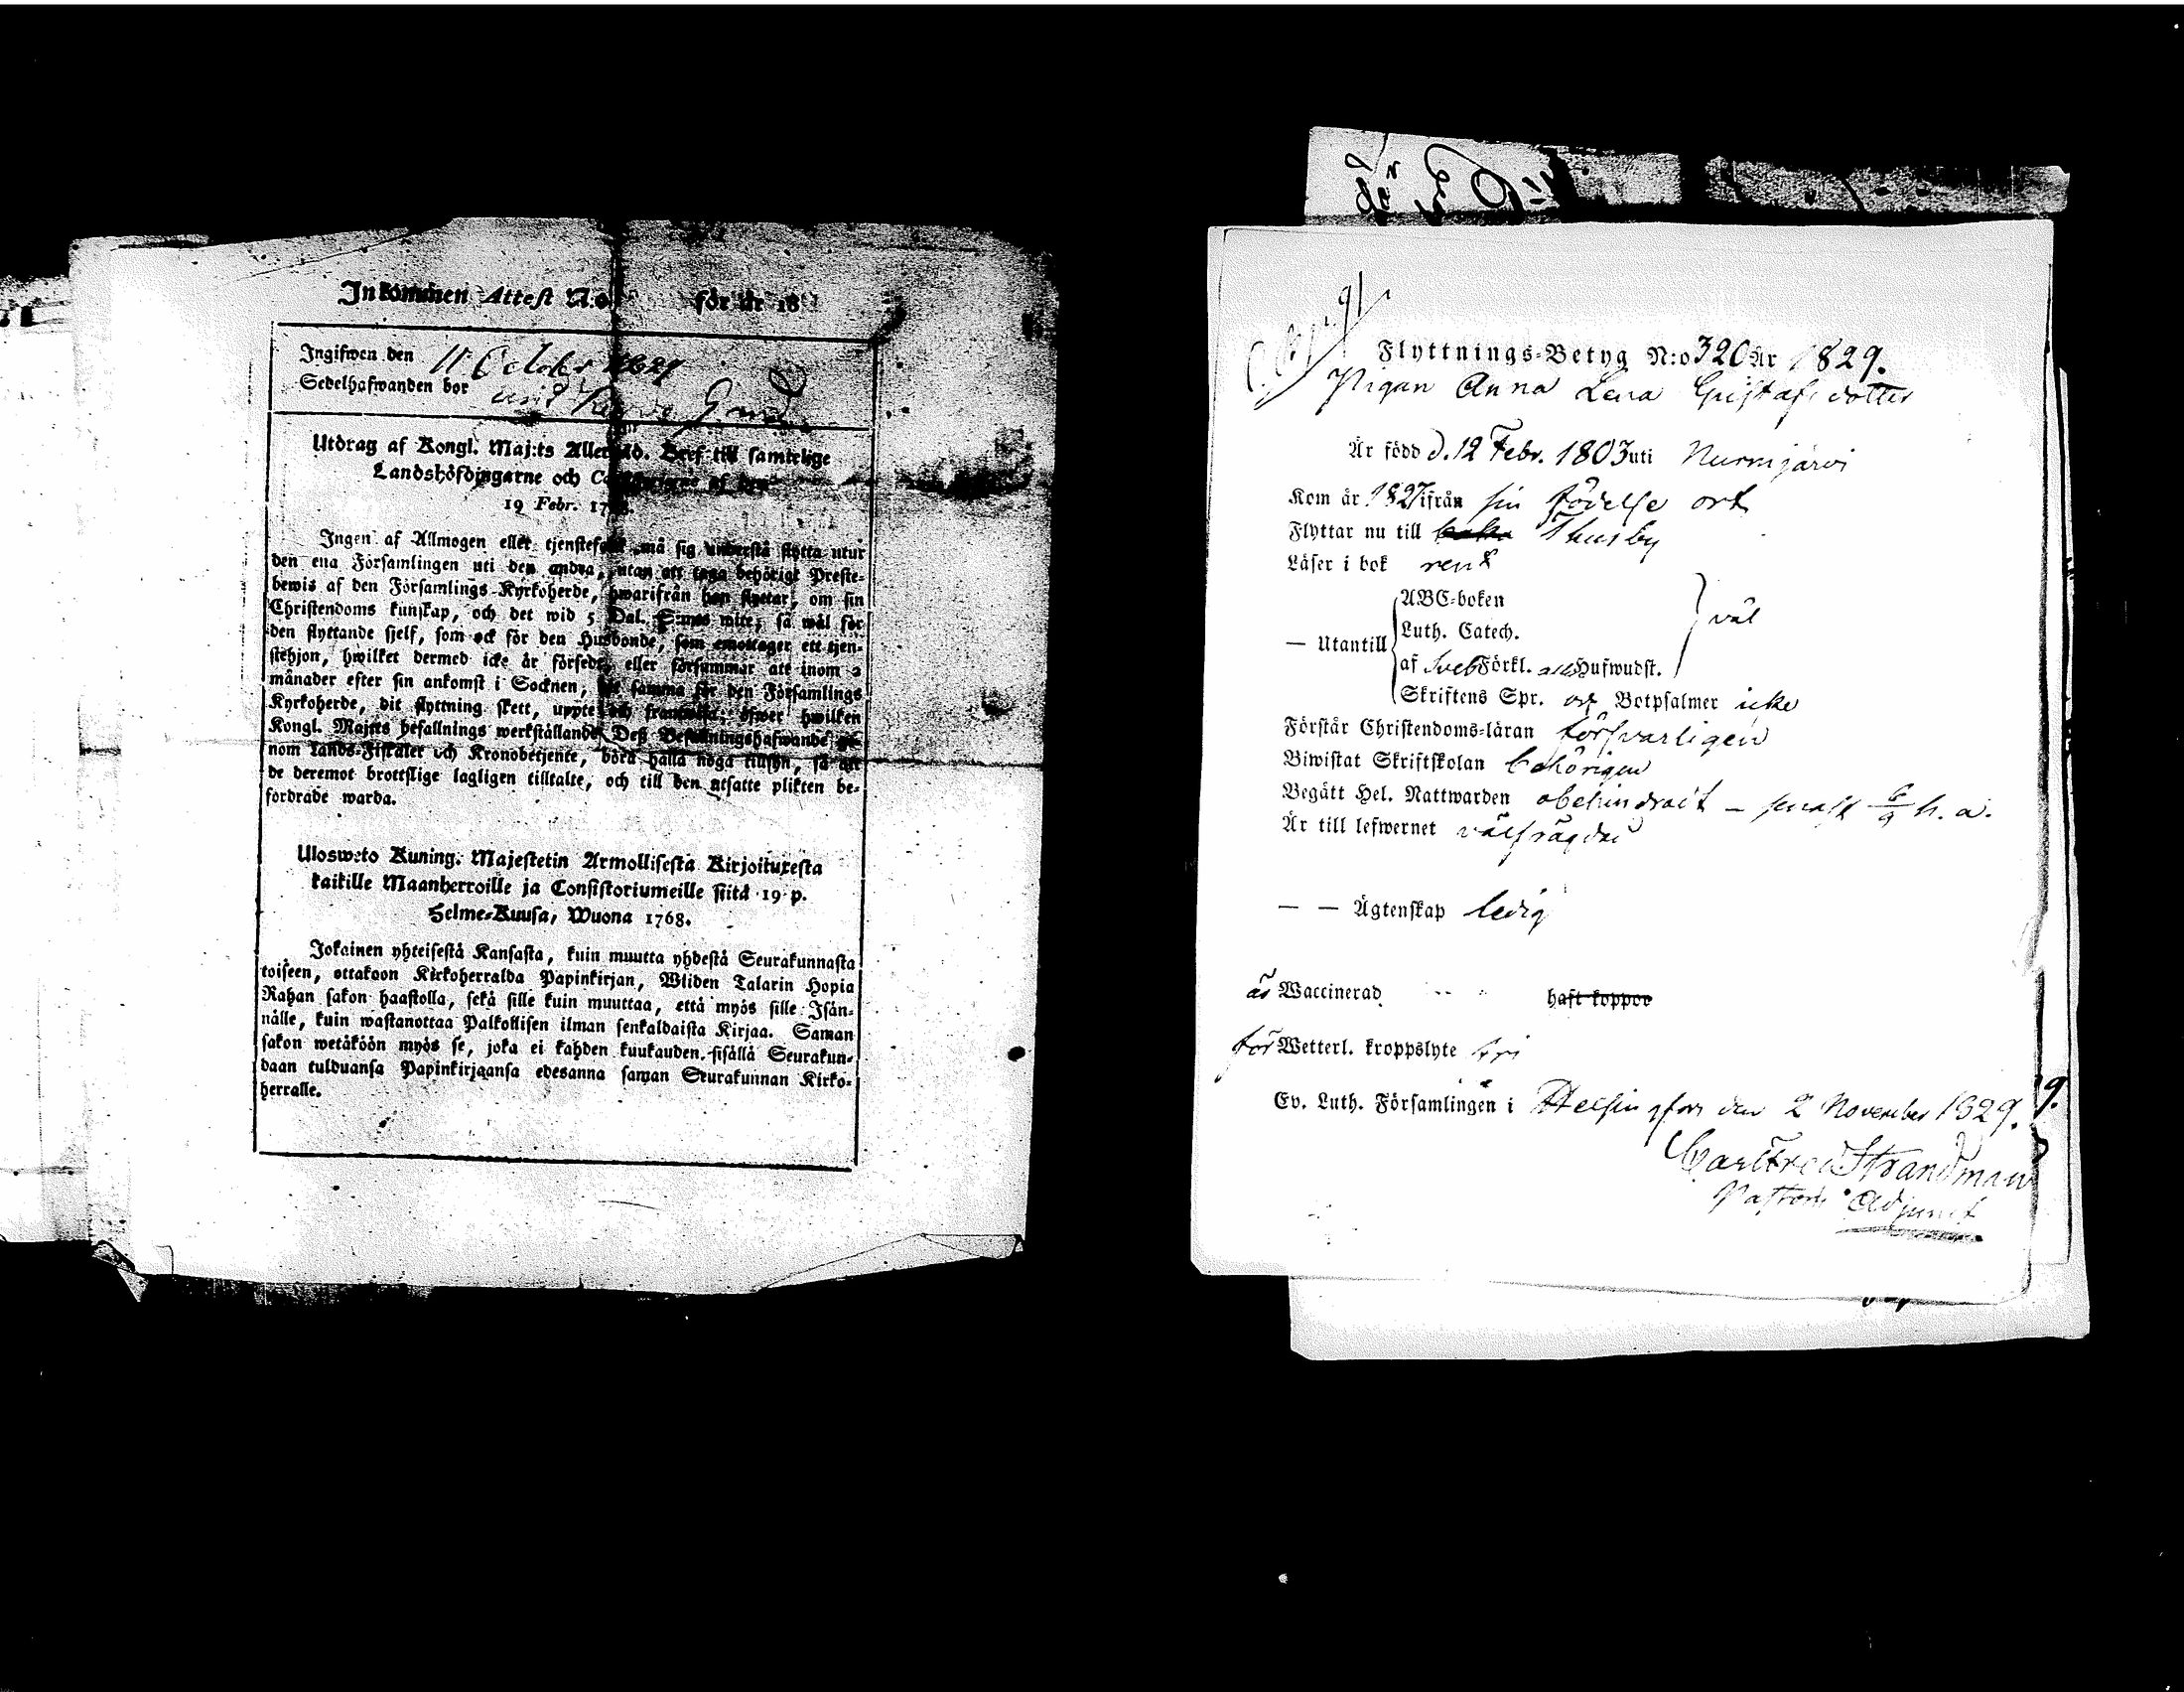 Inkommen Attest N:o för år 18
Ingifwen den 11 October 1829
Sedelhafwanden bor
Utdrag af Kongl. Maj:ts Allernåd. Bref till samtelige
Landshöfdingarne och af den
19 Febr. 17
Ingen af Allmogen eller tjenstefolk må sig understå flytta utur
den ena Församlingen uti den andra, utan att taga behörigt Preste-
bewis af den Församlings Kyrkoherde, hwarifrån han flyttar, om sin
Christendoms kunskap, och det wid 5 Dal. S:mts wite, så wäl för
den flyttande sjelf, som ock för den Husbonde, som emottager ett tjen-
stehjon, hwilket dermed icke är försedt, eller försummar att inom 2
månader efter sin ankomst i Socknen, samma för den Församlings
Kyrkoherde, dit flyttning skett, uppte och framwisa; öfwer hwilken
Kongl. Maj:ts befallnings werkställande Deß Befallningshafwande ge-
nom Lands-Fiskaler och Kronobetjente, böra hålla noga tillsyn, så att
de deremot brottslige lagligen tilltalte, och till den utsatte plikten be-
fordrade warda.
Ulosweto Kuning. Majestetin Armollisesta Kirjoituxesta
kaikille Maanherroille ja Consistoriumeille siitä 19 p.
Helme-Kuusa, Wuona 1768.
Jokainen yhteisestä Kansasta, kuin muutta yhdestä Seurakunnasta
toiseen, ottakoon Kirkoherralda Papinkirjan, Wliden Talarin Hopia
Rahan sakon haastolla, sekä sille kuin muuttaa, että myös sille Isän-
nälle, kuin wastanottaa Palkollisen ilman senkaldaista Kirjaa. Saman
sakon wetäköön myös se, joka ei kahden kuukauden sisällä Seurakun-
daan tulduansa Papinkirjaansa edesanna saman Seurakunnan Kirko-
herralle.
Flyttnings-Betyg N:o 320 År 1829.
Pigan Anna Lena Gustafsdotter
Är född d. 12 Febr. 1803 uti Nurmijärvi
Kom år 1827 ifrån sin födelse ort
Flyttar nu till Thusby
Läser i bok rent
ABC-boken
Luth. Catech.
väl
— Utantill
af Sveb Förkl. Hufwudst.
Skriftens Spr. och Botpsalmer icke
Förstår Christendoms-läran försvarligen
Biwistat Skriftskolan behörigen
Begått Hel. Nattwarden obehindradt – senast 6/9 h. a.
Är till lefwernet välfrägdad
— — Ägtenskap ledig
är Waccinerad haft koppor
för Wetterl. kroppslyte fri
Ev. Luth. Församlingen i Helsingfors den 2 November 1829.
Carl Fred Strandman
Pastors Adjunct